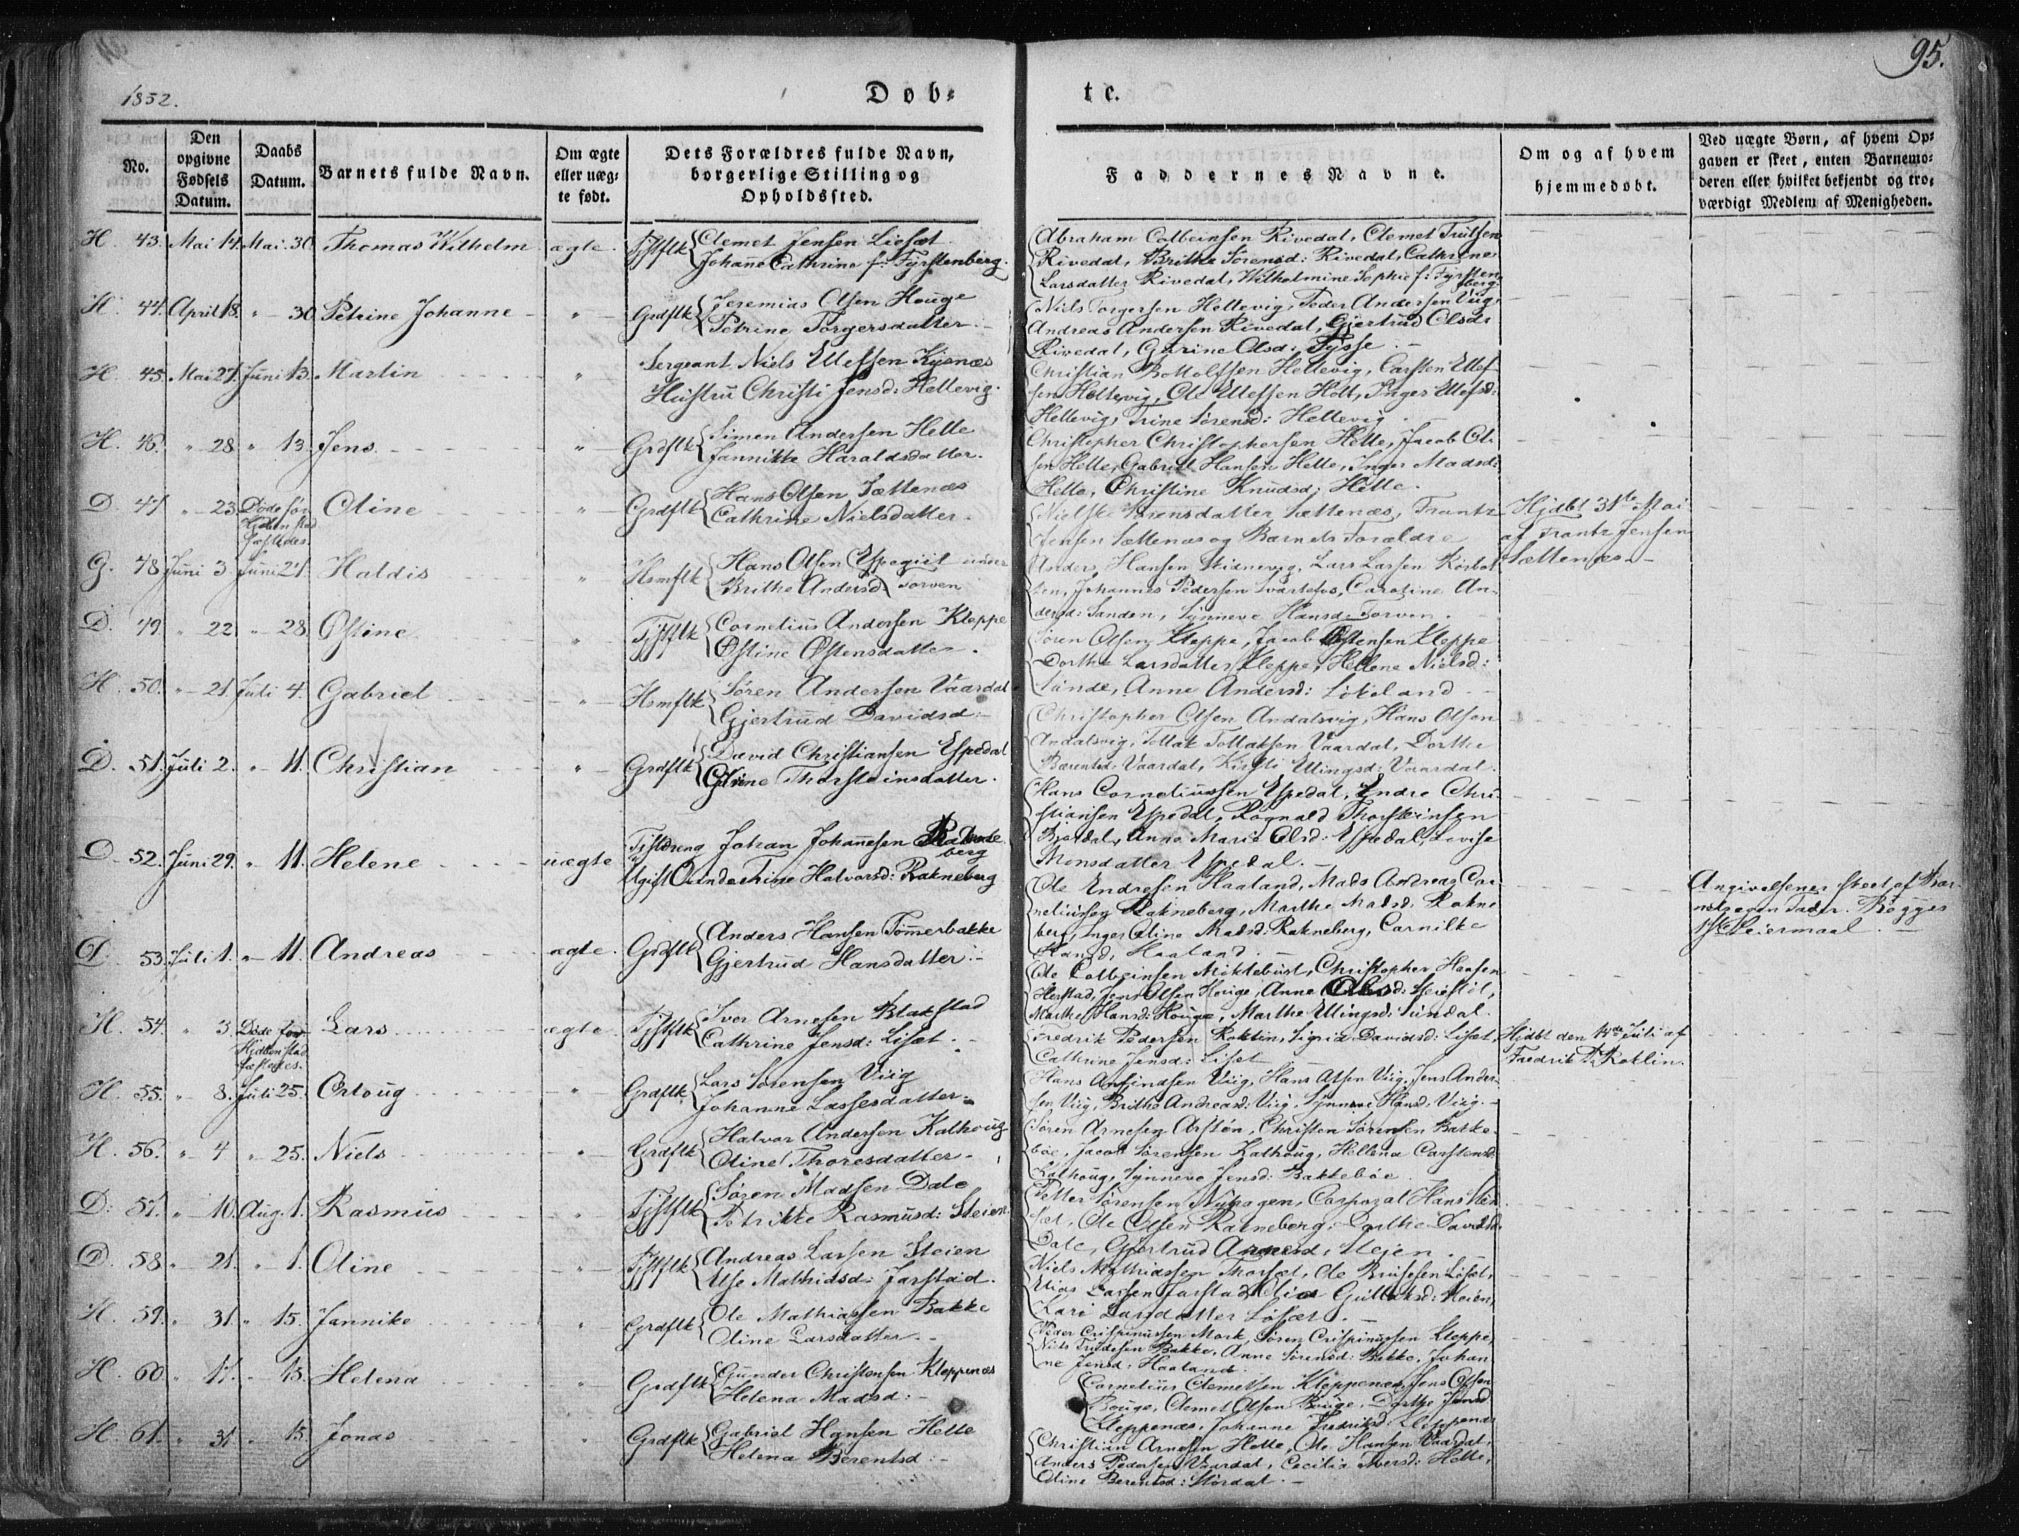 1852.
Døb-
te.
95.
No.
Den opgivne Fødsels Datum.
Daabs Datum.
Barnets fulde Navn.
Om ægte eller uægte født.
Dets Forældres fulde Navn, borgerlige Stilling og Opholdssted.
Faddernes Navne.
Om og af hvem hjemmedøbt.
Ved uægte Børn, af hvem Opgaven er skeet, enten Barnemoderen eller hvilket bekjendt og troværdigt Medlem af Menigheden.
H. 43. Mai 14. Mai. 30. Thomas Wilhelm ægte. Tjstflk Clemet Jensen Liesæt
Johanne Cathrine f: Fyrstenberg.
Abraham Colbeinsen Rivedal, Clemet Trulsen
Rivedal, Brithe Sørensd: Rivedal, Cathrine
Larsdatter Rivedal, Wilhelmine Sophie f: Fyrstenberg.
H. 44. April 18. " 30 Petrine Johanne " Grdflk Jeremias Olsen Houge
Petrine Torgersdatter.
Niels Torgersen Hellevig, Peder Andersen Viig,
Andreas Andersen Rivedal, Gjertrud Olsd:
Rivedal, Gurine Olsd: Tysse.
H. 45. Mai 27. Juni 13. Martin " Sergeant Niels Ellefsen
Hustru Christi Jensd: Hellevig.
Christian Bottolfsen Hellevig, Carsten Ellef
sen Hellevig, Ole Ellefsen Holt, Inger Ellefsd:
Hellevig, Trine Sørensd: Hellevig.
H. 46. " 28 " 13. Jens " Grdflk Simen Andersen Helle
Jannikke Haraldsdatter.
Christopher Christophersen Helle, Jacob Ol
sen Helle, Gabriel Hansen Helle, Inger Madsd:
Helle, Christine Knudsd: Helle.
D. 47 " 23 Døde før
Hjdbn stad
fæstedes.
Oline " Grdflk Hans Olsen Sættenæs
Cathrine Nielsdatter.
Sørensdatter Sættenæs, Frantz
Jensen Sættenæs og Barnets Forældre
Hjdbt 31te Mai
af Frantz Jensen
Sættenæs.
G. 48 Juni 3 Juni 27. Haldis " Hsmflk Hans Olsen under
Brithe Andersd: Torven
Anders Hansen Lars Larsen
Johannes Pedersen Svartefos, Caroline An-
dersd: Sanden, Synneve Hansd: Torven.
D. 49. " 22 " 28. Østine " Tjstflk Cornelius Andersen Kleppe
Østine Østensdatter.
Søren Olsen Kleppe, Jacob Østensen Kleppe
Dorthe Larsdatter Kleppe, Hellene Nielsd:
Sande, Anne Andersd: Løkeland
H. 50. " 21 Juli 4. Gabriel " Hsmflk Søren Andersen Vaardal
Gjertrud Davidsd:
Christopher Olsen Andalsvig, Hans Olsen
Andalsvig, Tollak Tollaksen Vaardal, Dorthe
Berentsd: Vaardal, Kirsti Ellingsd: Vaardal.
D. 51. Juli 2. " 11. Christian " Grdflk David Christiansen Espedal
Oline Thorsteinsdatter.
Hans Corneliussen Espedal, Endre Chri-
stiansen Espedal, Rognald Thorsteinsen
Anne Marie Olsd: Espedal, Lovise
Monsdatter Espedal.
D. 52. Juni 29. " 11. Helene uægte Tjstdreng Johan Johannesen
berg
Ugift Halvorsd: Rakneberg
Ole Endresen Haaland, Mads Andreas Cor-
neliussen Rakneberg, Marthe Madsd: Rakne
berg, Inger Oline Madsd: Rakneberg, Cornilke
Hansd: Haaland.
Angivelsener skeet af Bar-
nets egen Fader. Begges
1ste Leiermaal.
D. 53. Juli 1. " 11. Andreas ægte. Grdflk Anders Hansen Tømmerbakke
Gjertrud Hansdatter.
Ole Colbeinsen Mikkelbust, Christopher Hansen
Herstad, Jens Olsen Houge, Anne Olsd:
Marthe Hansd: Houge, Marthe Ellingsd: Sundal.
H. 54. " 3. Døde før
Hjdbn stad
fæstedes.
Lars ægte. Tjstflk Iver Arnesen Blakstad
Cathrine Jensd: Lisæt.
Fredrik Pedersen Roklin, Sigrid Davidsd: Lisæt,
Cathrine Jensd: Lisæt
Hjdbt den Juli af
Fredrik P. Roklin.
H. 55. " 8. Juli 25. Ortoug " Grdflk Lars Sørensen Viig
Johanne Lassesdatter.
Hans Viig, Hans Olsen Viig, Jens Ander-
sen Viig, Brithe Andreasd: Viig, Synneve Hansd: Viig.
H. 56. " 4 " 25. Niels " Grdflk Halvor Andersen Kalhoug
Oline Thoresdatter.
Søren Arnesen Christen Sørensen Bakke-
bøe, Jacob Sørensen Kalhoug, Hellena Carstensd:
Kalhoug, Synneve Jensd: Bakkebøe.
D. 57. " 10. Aug. 1. Rasmus " Tjstflk Søren Madsen Dale
Petrikke Rasmusd: Steien.
Petter Sørensen Corporal Hans
Ole Olsen Rakneberg, Dorthe Davidsd:
Dale, Gjertrud Steien.
D. 58. " 21. " 1. Oline " Tjstflk Andreas Larsen Steien
Else Mathiasd: Jarstad.
Niels Mathiassen Ole
Elias Larsen Jarstad, Gullaksd: Steien,
Kari Larsdatter
H. 59. " 31. " 15. Jannike " Grdflk Ole Mathiassen Bakke
Oline Larsdatter
Peder Crispinussen Mork, Søren Crispinussen Kleppe,
Niels Bakke, Anne Sørensd: Bakke, Johan
ne Jensd: Haaland.
H. 60. " 17. " 15. Helena " Grdflk Gunder Christensen Kleppenæs
Helena Madsd:
Cornelius Clemetsen Kleppenæs, Jens Olsen
Bouge, Clemet Olsen Bouge, Dorthe Jensd:
Kleppenæs, Johanne Fredriksd: Kleppenæs
H. 61. " 31 " 15. Jonas " Grdflk Gabriel Hansen Helle
Helena Berentsd:
Christian Arnesen Helle, Ole Hansen Vaardal,
Anders Pedersen Vaardal, Cecilia Iversd: Helle,
Oline Berentsd: Stordal.